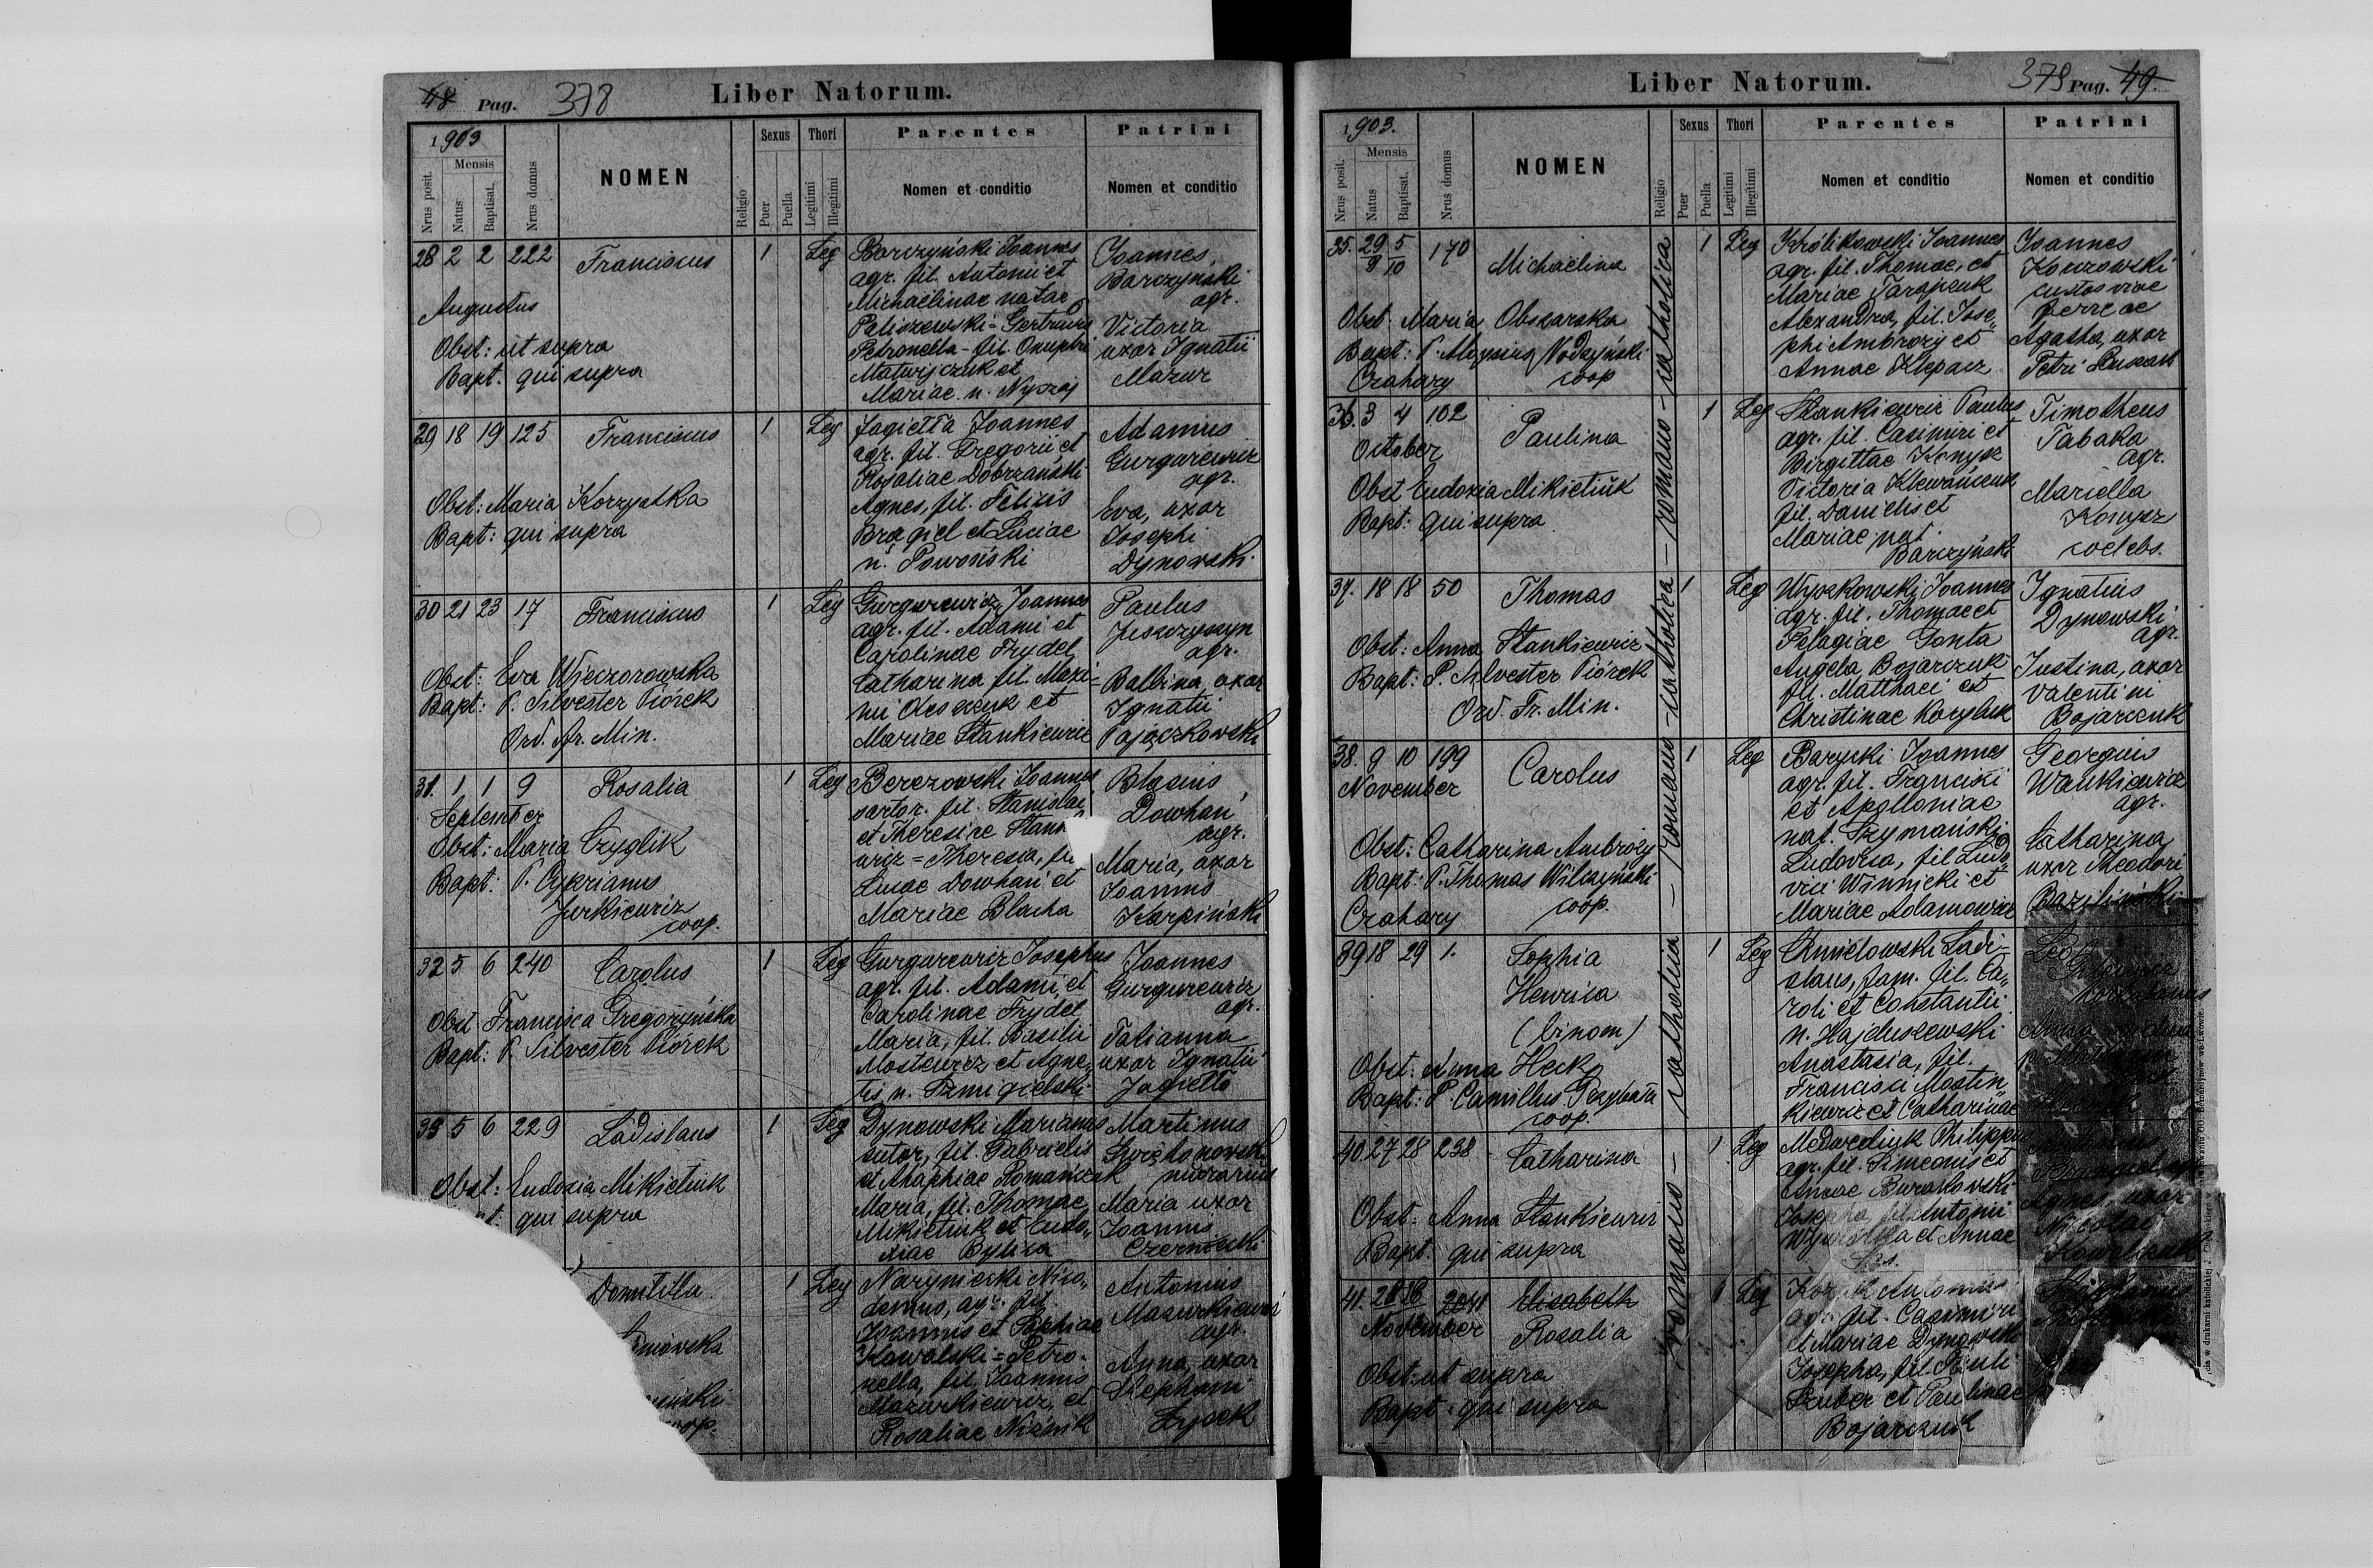 48 Pag. 378
Liber Natorum.
1903
Nrus posit.
Mensis
Natus
Baptisat.
Nrus domus
NOMEN
Religio
Sexus
Puer
Puella
Thori
Legitimi
Illegitimi
Parentes
Nomen et conditio
Patrini
Nomen et conditio
28 2 2 222 Franciscus 1 Leg
Augustus
Obst: ut supra
Bapt. qui supra
Barczyński Joannes
agr. fil. Antonii et
Michaelinae natae
Paliszewski = Gertrudis
Petronella - fil. Onuphri
Matwijczuk et
Mariae n. Nyszaj
Joannes
Barczynski
agr.
Victoria
uxor Ignatii
Mazur
29 18 19 125 Franciscus 1 Leg
Obst: Maria Korzystka
Bapt: qui supra
Jagiełła Joannes
agr. fil. Gregorii et
Rosaliae Dobrzański
Agnes, fil. Felicis
Bragiel et Luciae
n. Powoński
Adamus
Gurgurewicz
agr.
Eva, uxor
Josephi
Dynowski
30 21 23 17 Franciscus 1 Leg
Obst: Eva Wieczorowska
Bapt: P. Silvester Piórek
Ord. Fr. Min.
Gurgurewicz Joannes
agr. fil. Adami et
Carolinae Frydel
Catharina fil. Maxi-
mi Oleszczuk et
Mariae Stankiewicz
Paulus
Jeszczyszyn
agr.
Balbina, uxor
Ignatii
Pajączkowski
31. 1 1 9 Rosalia 1 Leg
September
Obst: Maria Czyglik
Bapt: P. Cyprianus
Jurkiewicz
coop.
Berezowski Joannes
sartor. fil. Stanislai
et Theresiae Stan
wicz = Theresia, fi
Lucae Dowhań et
Mariae Blacha
Blasius
Dowhań
agr.
Maria, uxor
Joannis
Karpiński
32 5 6 240 Carolus 1 Leg
Obst Francisca Gregoryńska
Bapt: P. Silvester Piórek
Gurgurewicz Josephus
agr. fil. Adami, et
Carolinae Frydel
Maria, fil. Basilii
Mostewicz et Agne-
tis n. Szmigielski
Joannes
Gurgurewicz
agr.
Tatianna
uxor Ignatii
Jagiełło
33 5 6 229 Ladislaus 1 Leg
Obst: Eudoxia Mikietiuk
qui supra
Dynowski Marianus
sutor, fil. Gabrielis
et Ahaphiae Romanczuk
Maria, fil. Thomae
Mikietiuk et Eudo-
xiae Bylica
Martinus
murarius
Maria uxor
Joannis
Czerniecki
Domitilla 1 Leg
coop.
Naryniecki Nico-
demus, agr. fil.
Joannis et Sophiae
Kowalski = Petro-
nella, fil. Joannis
Mazurkiewicz, et
Rosaliae Niżnik
Antonius
Mazurkiewicz
agr.
Anna, uxor
Stephani
Łysek
Liber Natorum.
379 Pag. 49.
1903.
Nrus posit.
Mensis
Natus
Baptisat.
Nrus domus
NOMEN
Religio
Sexus
Puer
Puella
Thori
Legitimi
Illegitimi
Parentes
Nomen et conditio
Patrini
Nomen et conditio
romano - catholica - romano - catholica - romano - catholica - romano - catholica
35. 29/9 5/10 170 Michaelina 1 Leg
Obst: Maria Obszarska
Bapt: P. Aloysius Wodzyński
Czahary coop
Królikowski Joannes
agr. fil. Thomae, et
Mariae Tarapczuk
Alexandra, fil. Jose-
phi Ambrozy et
Annae Klepacz
Joannes
custos viae
ferreae
Agatha, uxor
Petri
36. 3 4 102 Paulina 1 Leg
October
Obst Eudoxia Mikietiuk
Bapt: qui supra
Stankiewicz Paulus
agr. fil. Casimiri et
Birgittae Konysz
Victoria Klewańczuk
fil. Danielis et
Mariae nat.
Barczyński
Timotheus
Tabaka
agr.
Mariella
Konysz
coelebs.
37. 18 18 50 Thomas 1 Leg
Obst: Anna Stankiewicz
Bapt: P. Silvester Piórek
Ord. Fr. Min.
Wyszkowski Joannes
agr. fil. Thomae et
Pelagiae Gonta
Angela Bojarczuk
fil. Matthaei et
Christinae Korybuk
Ignatius
Dynowski
agr.
Justina, uxor
Valentini
Bojarczuk
38. 9 10 199 Carolus 1 Leg
November
Obst: Catharina Ambroży
Bapt: P. Thomas Wilczyński
Czahary coop.
Barycki Joannes
agr. fil. Francisci
et Apolloniae
nat. Szymański
Ludovica, fil Ludo-
vici Winnicki et
Mariae Adamowicz
Georgius
Wankiewicz
agr.
Catharina
uxor Theodori
39 18 29 1. Sophia 1 Leg
Henrica
(binom)
Obst: Anna Heck
Bapt: P. Camillus
coop.
Chmielowski Ladi-
slaus, fam. fil. Ca-
roli et Constantii
n. Hajduszewski
Anastasia, fil.
Francisci Mostin
kiewicz et Catharinae
40. 27 28 238 Catharina 1 Leg
Obst: Anna Stankiewicz
Bapt: qui supra
Medwediuk Philippus
agr. fil. Simeonis et
Annae Burakowski
Josepha fil. Antonii
et Annae
Agnes, uxor
Nicolai
Kowalczuk
41. 28 2041 Elisabeth 1 Leg
November Rosalia
Obst: ut supra
Bapt: qui supra
Antonius
agr. fil. Casimiri
et Mariae Dynowski
Josepha, fil. Pauli
Szuber et Paulinae
Bojarczuk